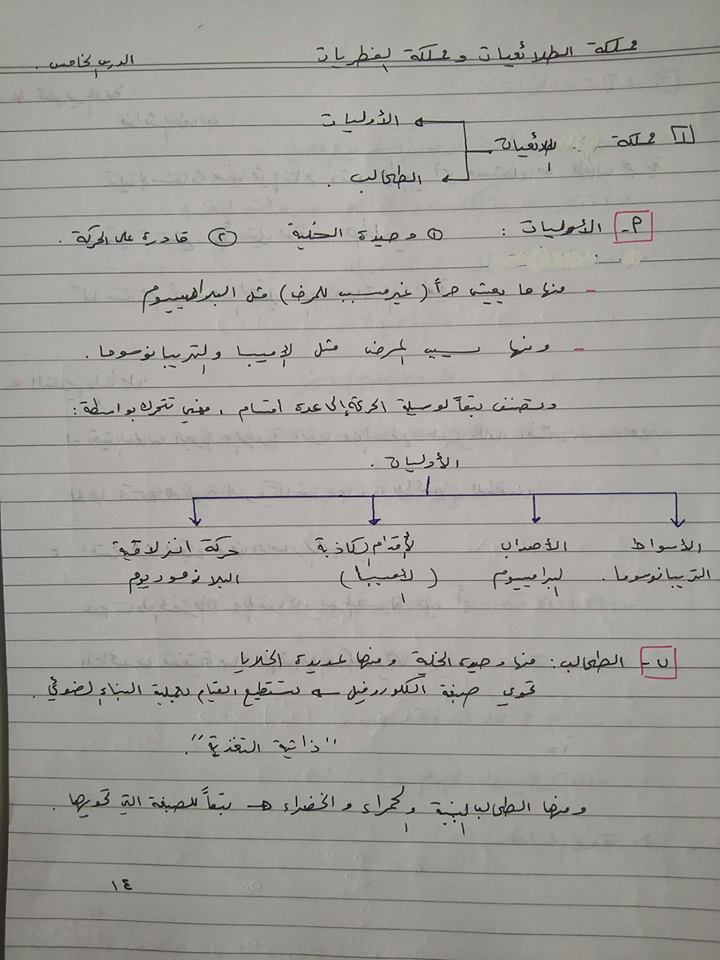 مملكة الطلائعيات ومملكة الفطريات
الدرس الخامس .
1 مملكة الطلائعيات
الأوليات
الطحالب .
أ- الأوليات : ① وحيدة الخلية ② قادرة على الحركة .
- منها ما يعيش حراً (غير مسبب للمرض) مثل البراميسيوم
- ومنها يسبب المرض مثل الإميبا والتريبانوسوما .
وتصنف تبعاً لوسيلة الحركة إلى عدة أقسام ، فهي تتحرك بواسطة :
الأوليات .
الأسواط الأهداب الأقدام الكاذبة حركة انزلاقية
التريبانوسوما . البراميسيوم (الإميبا) البلازموديوم
ب- الطحالب : منها وحيدة الخلية ومنها عديدة الخلايا
تحوي صبغة الكلوروفيل ← تستطيع القيام بعملية البناء الضوئي .
"ذاتية التغذية" .
ومنها الطحالب البنية والحمراء والخضراء ← تبعاً للصبغة التي تحويها .
١٤